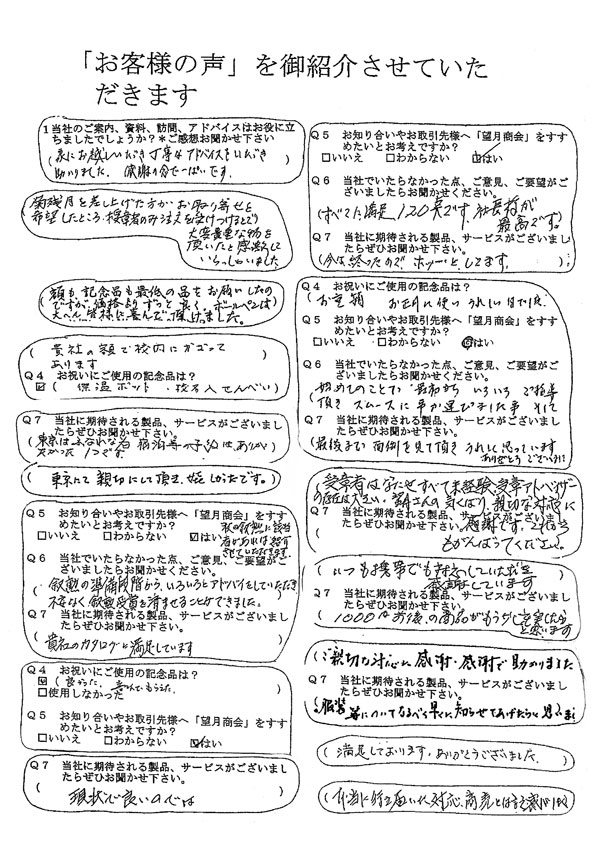 「お客様の声」を御紹介させていた
だきます
1当社のご案内、資料、訪問、アドバイスはお役に立
ちましたでしょうか？＊ご感想お聞かせ下さい
お越しいただき丁寧なアドバイスをいただき
助かりました。感謝の念で一ぱいです。
頂いたと感激して
いらっしゃいました
額も記念品も最低の品をお願いしたの
ですが、価格よりずっと良く、ボールペンは
大へん皆様に喜んで頂けました。
（貴社の額で校内にかざって
あります
Q4 お祝いにご使用の記念品は？
（保温ポット、校名入せんべい）
Q7 当社に期待される製品、サービスがございまし
たらぜひお聞かせ下さい。
東京にて親切にして頂き、嬉しかったです。
Q5 お知り合いやお取引先様へ「望月商会」をすす
めたいとお考えですか？
□いいえ □わからない ☑はい
Q6 当社でいたらなかった点、ご意見、ご要望がご
ざいましたらお聞かせください。
叙勲の準備段階から、いろいろとアドバイスしていただき
不安なく叙勲受賞を済ませることができました。
Q7 当社に期待される製品、サービスがございまし
たらぜひお聞かせ下さい。
貴社のカタログに満足しています
Q4 お祝いにご使用の記念品は？
☑（良かった、喜んでもらえた
□使用しなかった
Q5 お知り合いやお取引先様へ「望月商会」をすす
めたいとお考えですか？
□いいえ □わからない ☑はい
Q7 当社に期待される製品、サービスがございまし
たらぜひお聞かせ下さい。
現状で良いのでは
Q5 お知り合いやお取引先様へ「望月商会」をすす
めたいとお考えですか？
□いいえ □わからない ☑はい
Q6 当社でいたらなかった点、ご意見、ご要望がご
ざいましたらお聞かせください。
（すべて大満足120点です。社長様が
最高です。）
Q7 当社に期待される製品、サービスがございまし
たらぜひお聞かせ下さい。
（今は終ったので、ホッとしてます。）
Q4 お祝いにご使用の記念品は？
Q5 お知り合いやお取引先様へ「望月商会」をすす
めたいとお考えですか？
□いいえ □わからない ☑はい
Q6 当社でいたらなかった点、ご意見、ご要望がご
ざいましたらお聞かせください。
初めてのことで、最初からいろいろご指導
頂きスムースに事が運びました事
Q7 当社に期待される製品、サービスがございまし
たらぜひお聞かせ下さい。
（最後まで面倒を見て頂きうれしく思っています
ありがとうございます）
受章者はなにせすべて未経験、受章アドバイザー
の存在は大きい。奥さんの気くばり、親切な対応に
Q7 当社に期待される製品、サービスがございまし
たらぜひお聞かせ下さい。
感謝です。これからも
がんばってください。
（いつも携帯でも対応していただき
感謝しています）
Q7 当社に期待される製品、サービスがございまし
たらぜひお聞かせ下さい。
（1000円前後の商品がもう少し充実したらと
思います
（ご親切な対応に感謝・感謝で助かりました
Q7 当社に期待される製品、サービスがございまし
たらぜひお聞かせ下さい。
服装等についてなるべく早く知らせてあげたらと思います
（満足しております。ありがとうございました。）
（本当に行き届いた対応、商売とは言え